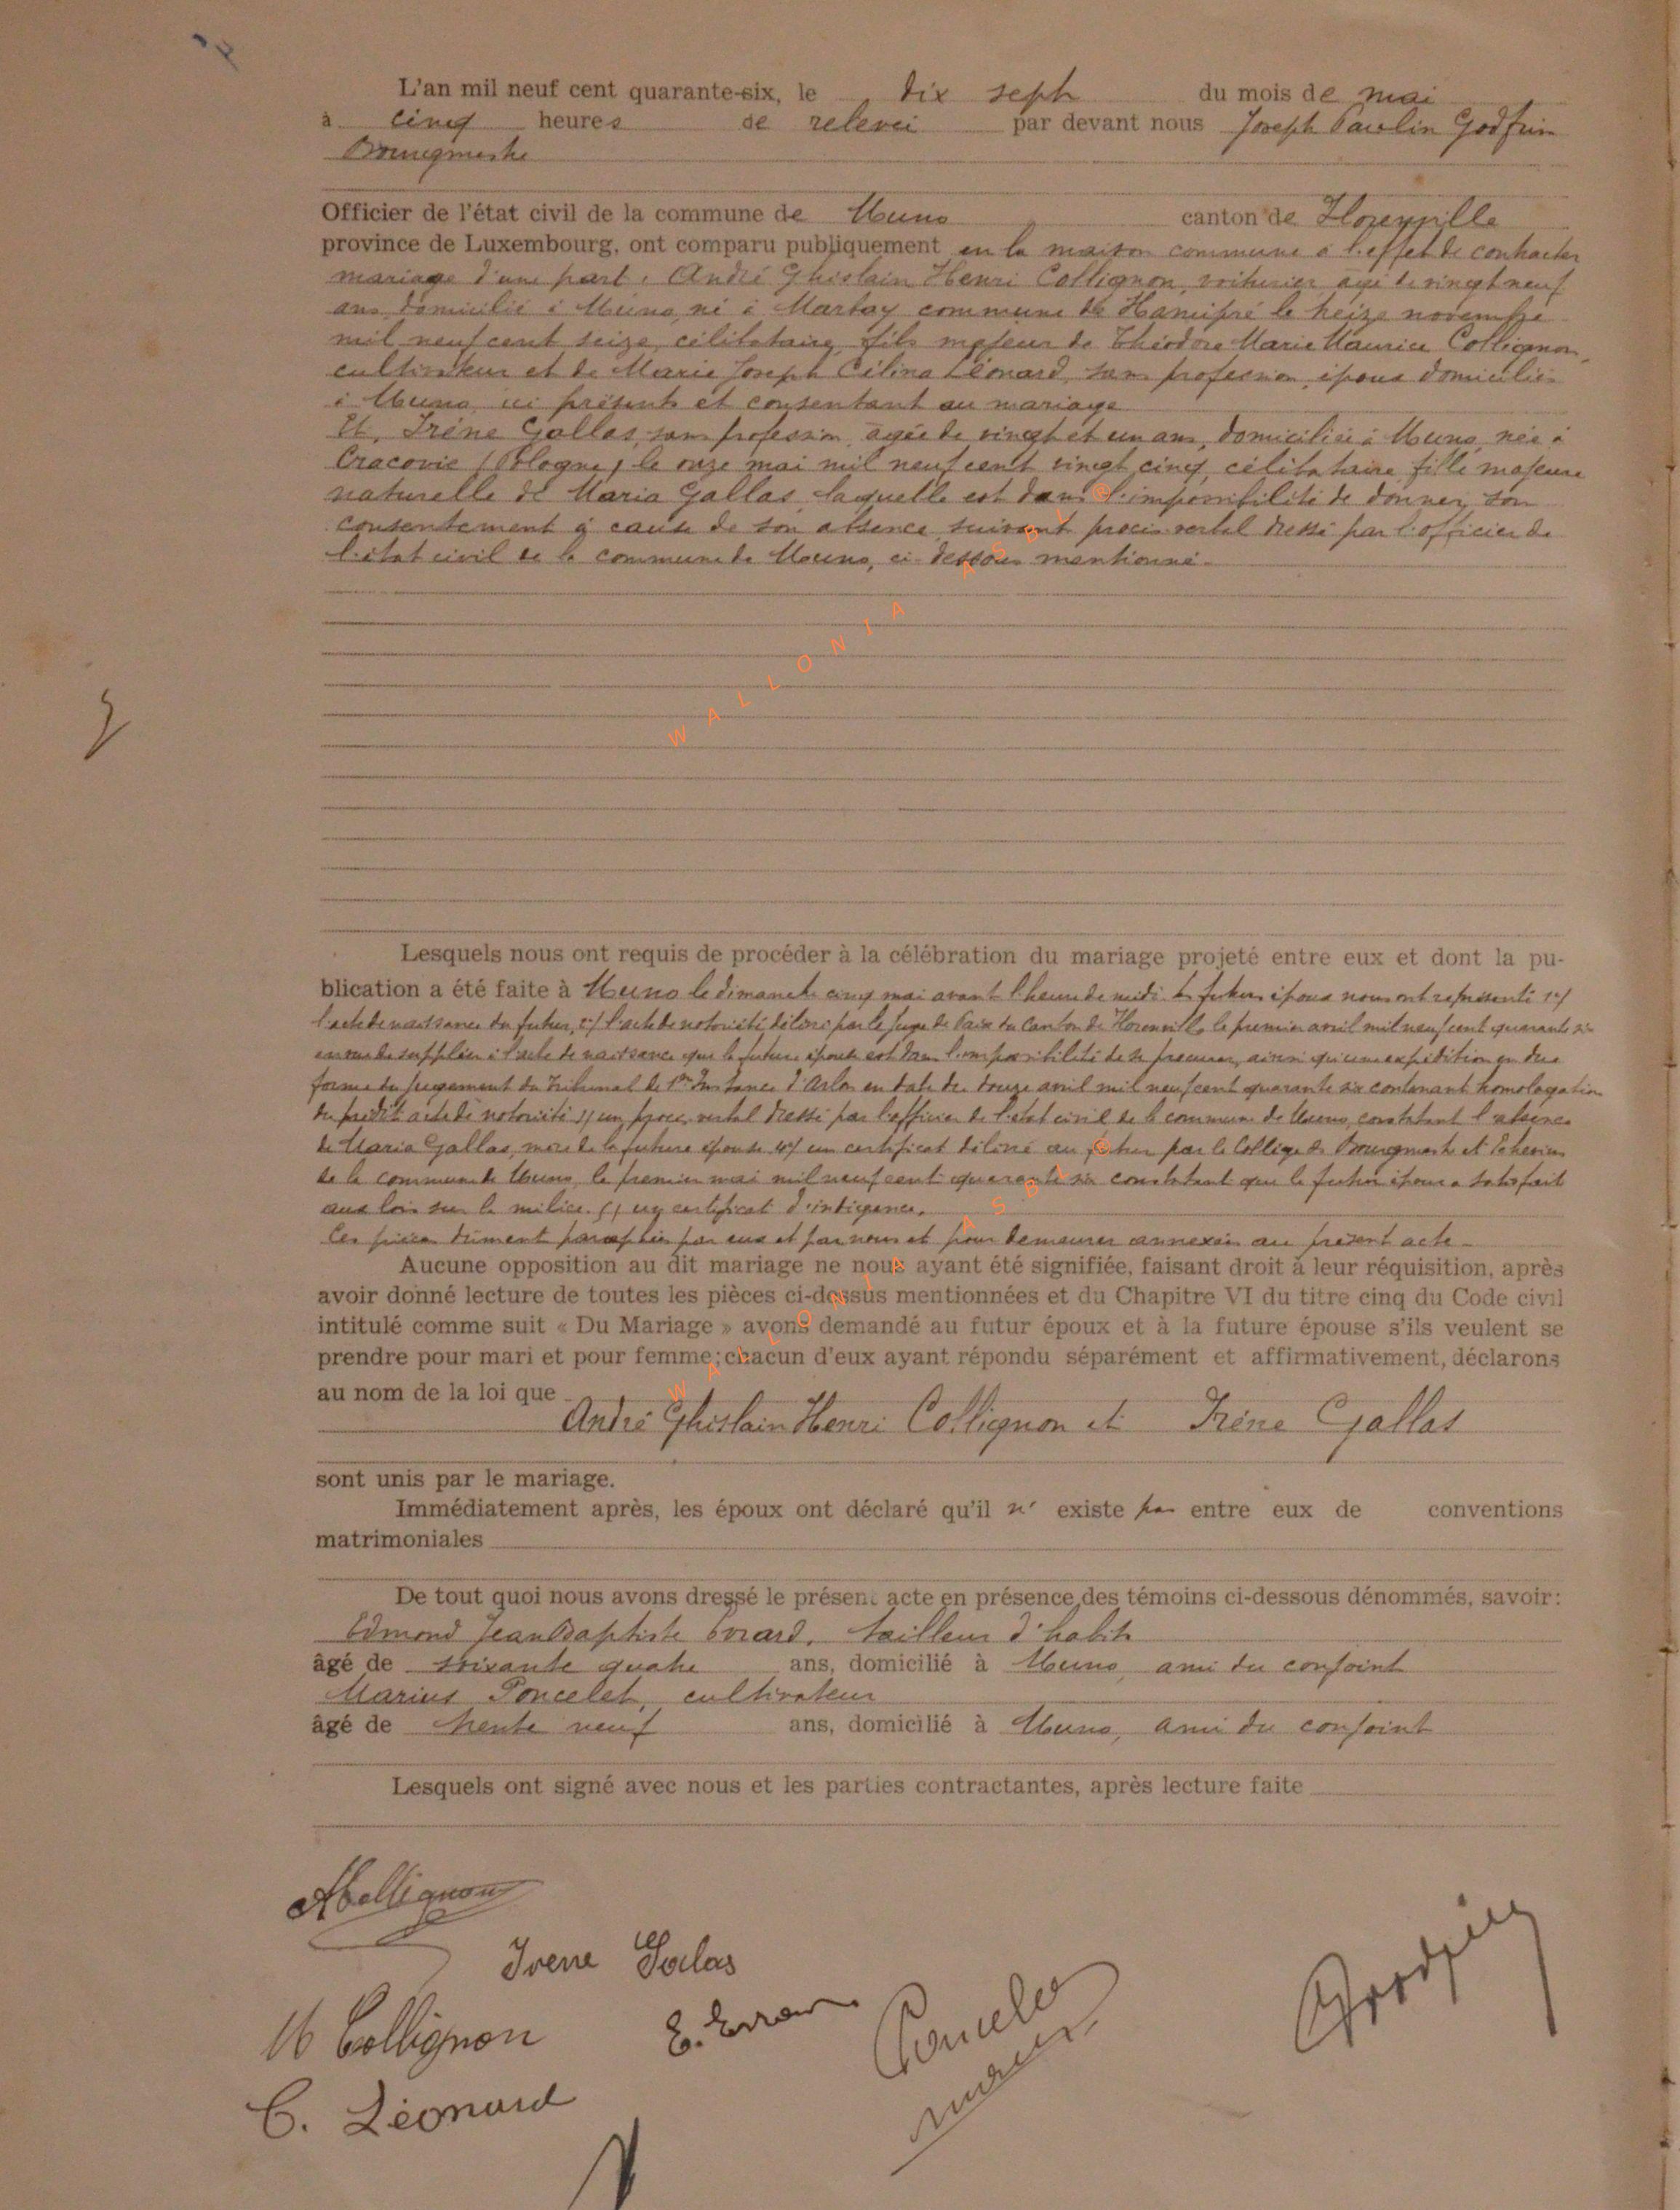 L'an mil neuf cent quarante-six, le dix sept du mois de mai
à cinq heures de relevée par devant nous Joseph Paulin Godfrin
Bourgmestre
Officier de l'état civil de la commune de Muno canton de Florenville
province de Luxembourg, ont comparu publiquement en la maison commune à l'effet de contracter
mariage d'une part, André Ghislain Henri Collignon, voiturier âgé de vingt neuf
ans domicilié à Muno, né à Marbay commune de Hamipré le treize novembre
mil neuf cent seize, célibataire, fils majeur de Théodore Marie Maurice Collignon,
cultivateur et de Marie Joseph Célina Léonard, sans profession, époux domiciliés
à Muno, ici présents et consentant au mariage
Et, Irène Gallas, sans profession, âgée de vingt et un ans, domiciliée à Muno, née à
Cracovie (Pologne) le onze mai mil neuf cent vingt cinq, célibataire, fille majeure
naturelle de Maria Gallas, laquelle est dans l'impossibilité de donner son
consentement à cause de son absence suivant procès-verbal dressé par l'officier de
l'état civil de la commune de Muno, ci-dessous mentionné.
WALLONIA ASBL ©
Lesquels nous ont requis de procéder à la célébration du mariage projeté entre eux et dont la pu-
blication a été faite à Muno le dimanche cinq mai avant l'heure de midi. Les futurs époux nous ont représenté 1°/
l'acte de naissance du futur, 2°/ l'acte de notoriété délivré par le Juge de Paix du Canton de Florenville le premier avril mil neuf cent quarante six
en vue de suppléer à l'acte de naissance que la future épouse est dans l'impossibilité de se procurer, ainsi qu'une expédition en due
forme du jugement du Tribunal de 1ère Instance d'Arlon en date du douze avril mil neuf cent quarante six contenant homologation
du prédit acte de notoriété 3/ un procès verbal dressé par l'officier de l'état civil de la commune de Muno, constatant l'absence
de Maria Gallas, mère de la future épouse 4°/ un certificat délivré au futur par le Collège de Bourgmestre et Echevins
de la commune de Muno, le premier mai mil neuf cent quarante six constatant que le futur époux a satisfait
aux lois sur la milice. 5/ un certificat d'indigence.
Ces pièces dûment paraphées par eux et par nous et pour demeurer annexées au présent acte.
Aucune opposition au dit mariage ne nous ayant été signifiée, faisant droit à leur réquisition, après
avoir donné lecture de toutes les pièces ci-dessus mentionnées et du Chapitre VI du titre cinq du Code civil
intitulé comme suit « Du Mariage » avons demandé au futur époux et à la future épouse s'ils veulent se
prendre pour mari et pour femme; chacun d'eux ayant répondu séparément et affirmativement, déclarons
au nom de la loi que
André Ghislain Henri Collignon et Irène Gallas
WALLONIA ASBL ©
sont unis par le mariage.
Immédiatement après, les époux ont déclaré qu'il n' existe pas entre eux de conventions
matrimoniales
De tout quoi nous avons dressé le présent acte en présence des témoins ci-dessous dénommés, savoir:
Edmond Jean Baptiste Evrard, tailleur d'habits
âgé de soixante quatre ans, domicilié à Muno, ami du conjoint
Marius Poncelet, cultivateur
âgé de trente neuf ans, domicilié à Muno, ami du conjoint
Lesquels ont signé avec nous et les parties contractantes, après lecture faite
ACollignon
Irene Galas
M Collignon
E. Evrard
Poncelet
Marius
Godfrin
C. Léonard